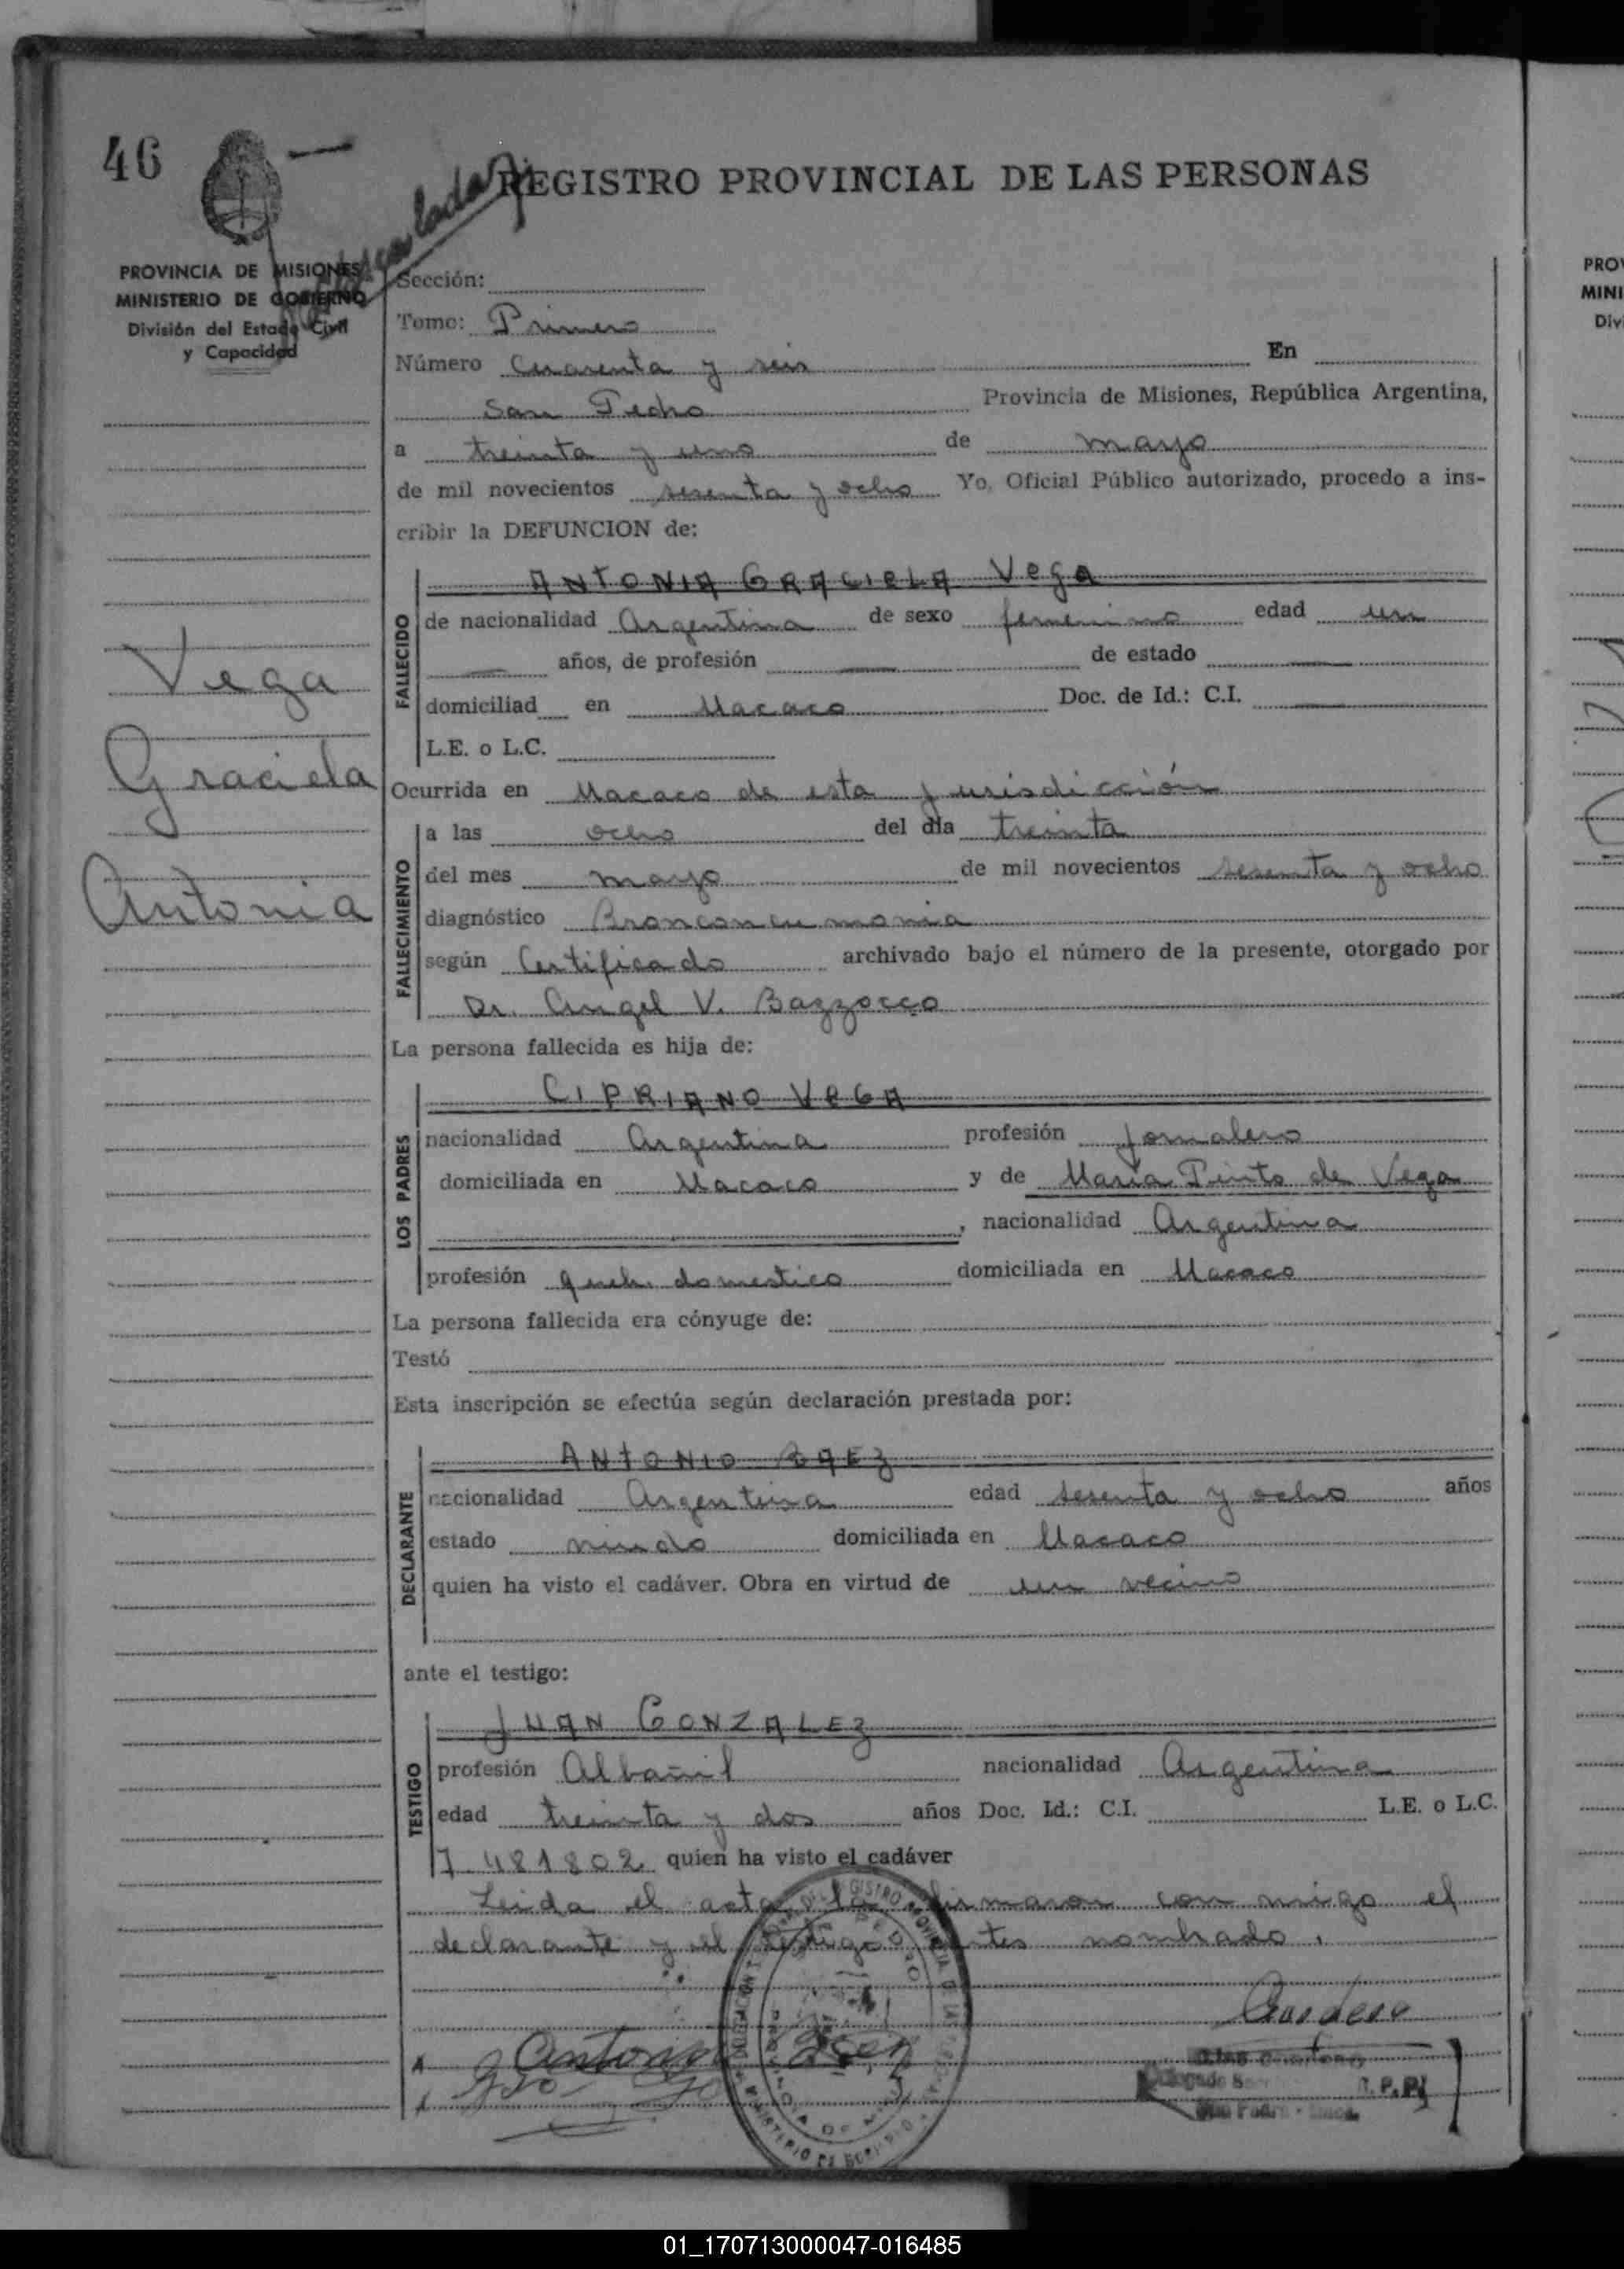 46
REGISTRO PROVINCIAL DE LAS PERSONAS
PROVINCIA DE MISIONES
MINISTERIO DE GOBIERNO
División del Estado Civil
y Capacidad
Sección:
Tomo: Primero
Número Cuarenta y seis En
San Pedro Provincia de Misiones, República Argentina,
a treinta y uno de mayo
de mil novecientos sesenta y ocho Yo, Oficial Público autorizado, procedo a ins-
cribir la DEFUNCION de:
ANTONIA GRACIELA Vega
FALLECIDO
de nacionalidad Argentina de sexo femenino edad un
años, de profesión — de estado —
domiciliad en Macaco Doc. de Id.: C.I. —
L.E. o L.C.
Vega
Graciela
Antonia
Ocurrida en Macaco de esta jurisdicción
FALLECIMIENTO
a las ocho del día treinta
del mes mayo de mil novecientos sesenta y ocho
diagnóstico Bronconeumonia
según Certificado archivado bajo el número de la presente, otorgado por
Dr. Angel V. Bazzocco
La persona fallecida es hija de:
CIPRIANO VEGA
LOS PADRES
nacionalidad Argentina profesión Jornalero
domiciliada en Macaco y de María Pinto de Vega
, nacionalidad Argentina
profesión domestico domiciliada en Macaco
La persona fallecida era cónyuge de:
Testó
Esta inscripción se efectúa según declaración prestada por:
ANTONIO BAEZ
DECLARANTE
nacionalidad Argentina edad sesenta y ocho años
estado viudo domiciliada en Macaco
quien ha visto el cadáver. Obra en virtud de un vecino
ante el testigo:
JUAN GONZALEZ
TESTIGO
profesión Albañil nacionalidad Argentina
edad treinta y dos años Doc. Id.: C.I. L.E. o L.C.
7481802 quien ha visto el cadáver
Leida el acta la firmaron con migo el
declarante y el testigo antes nombrado.
Antonio Baez
R.P.P.
01_170713000047-016485